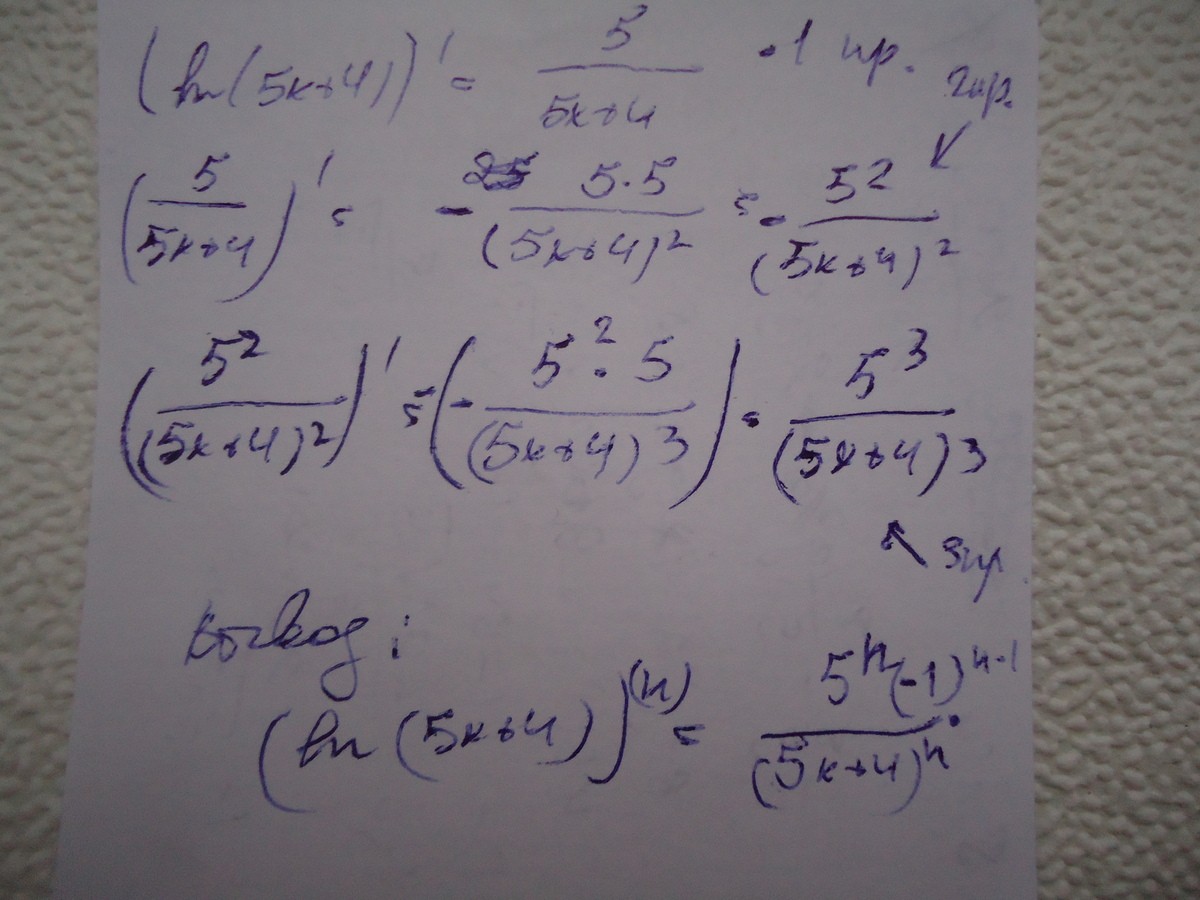 (ln(5x+4))' = 5/(5x+4) - 1 пр. 2 пр.
(5/(5x+4))' = - (5·5)/(5x+4)² = - 5²/(5x+4)²
(5²/(5x+4)²)' = (- (5²·5)/(5x+4)³) = 5³/(5x+4)³
3 пр.
вывод:
(ln(5x+4))⁽ⁿ⁾ = 5ⁿ(-1)ⁿ⁻¹/(5x+4)ⁿ